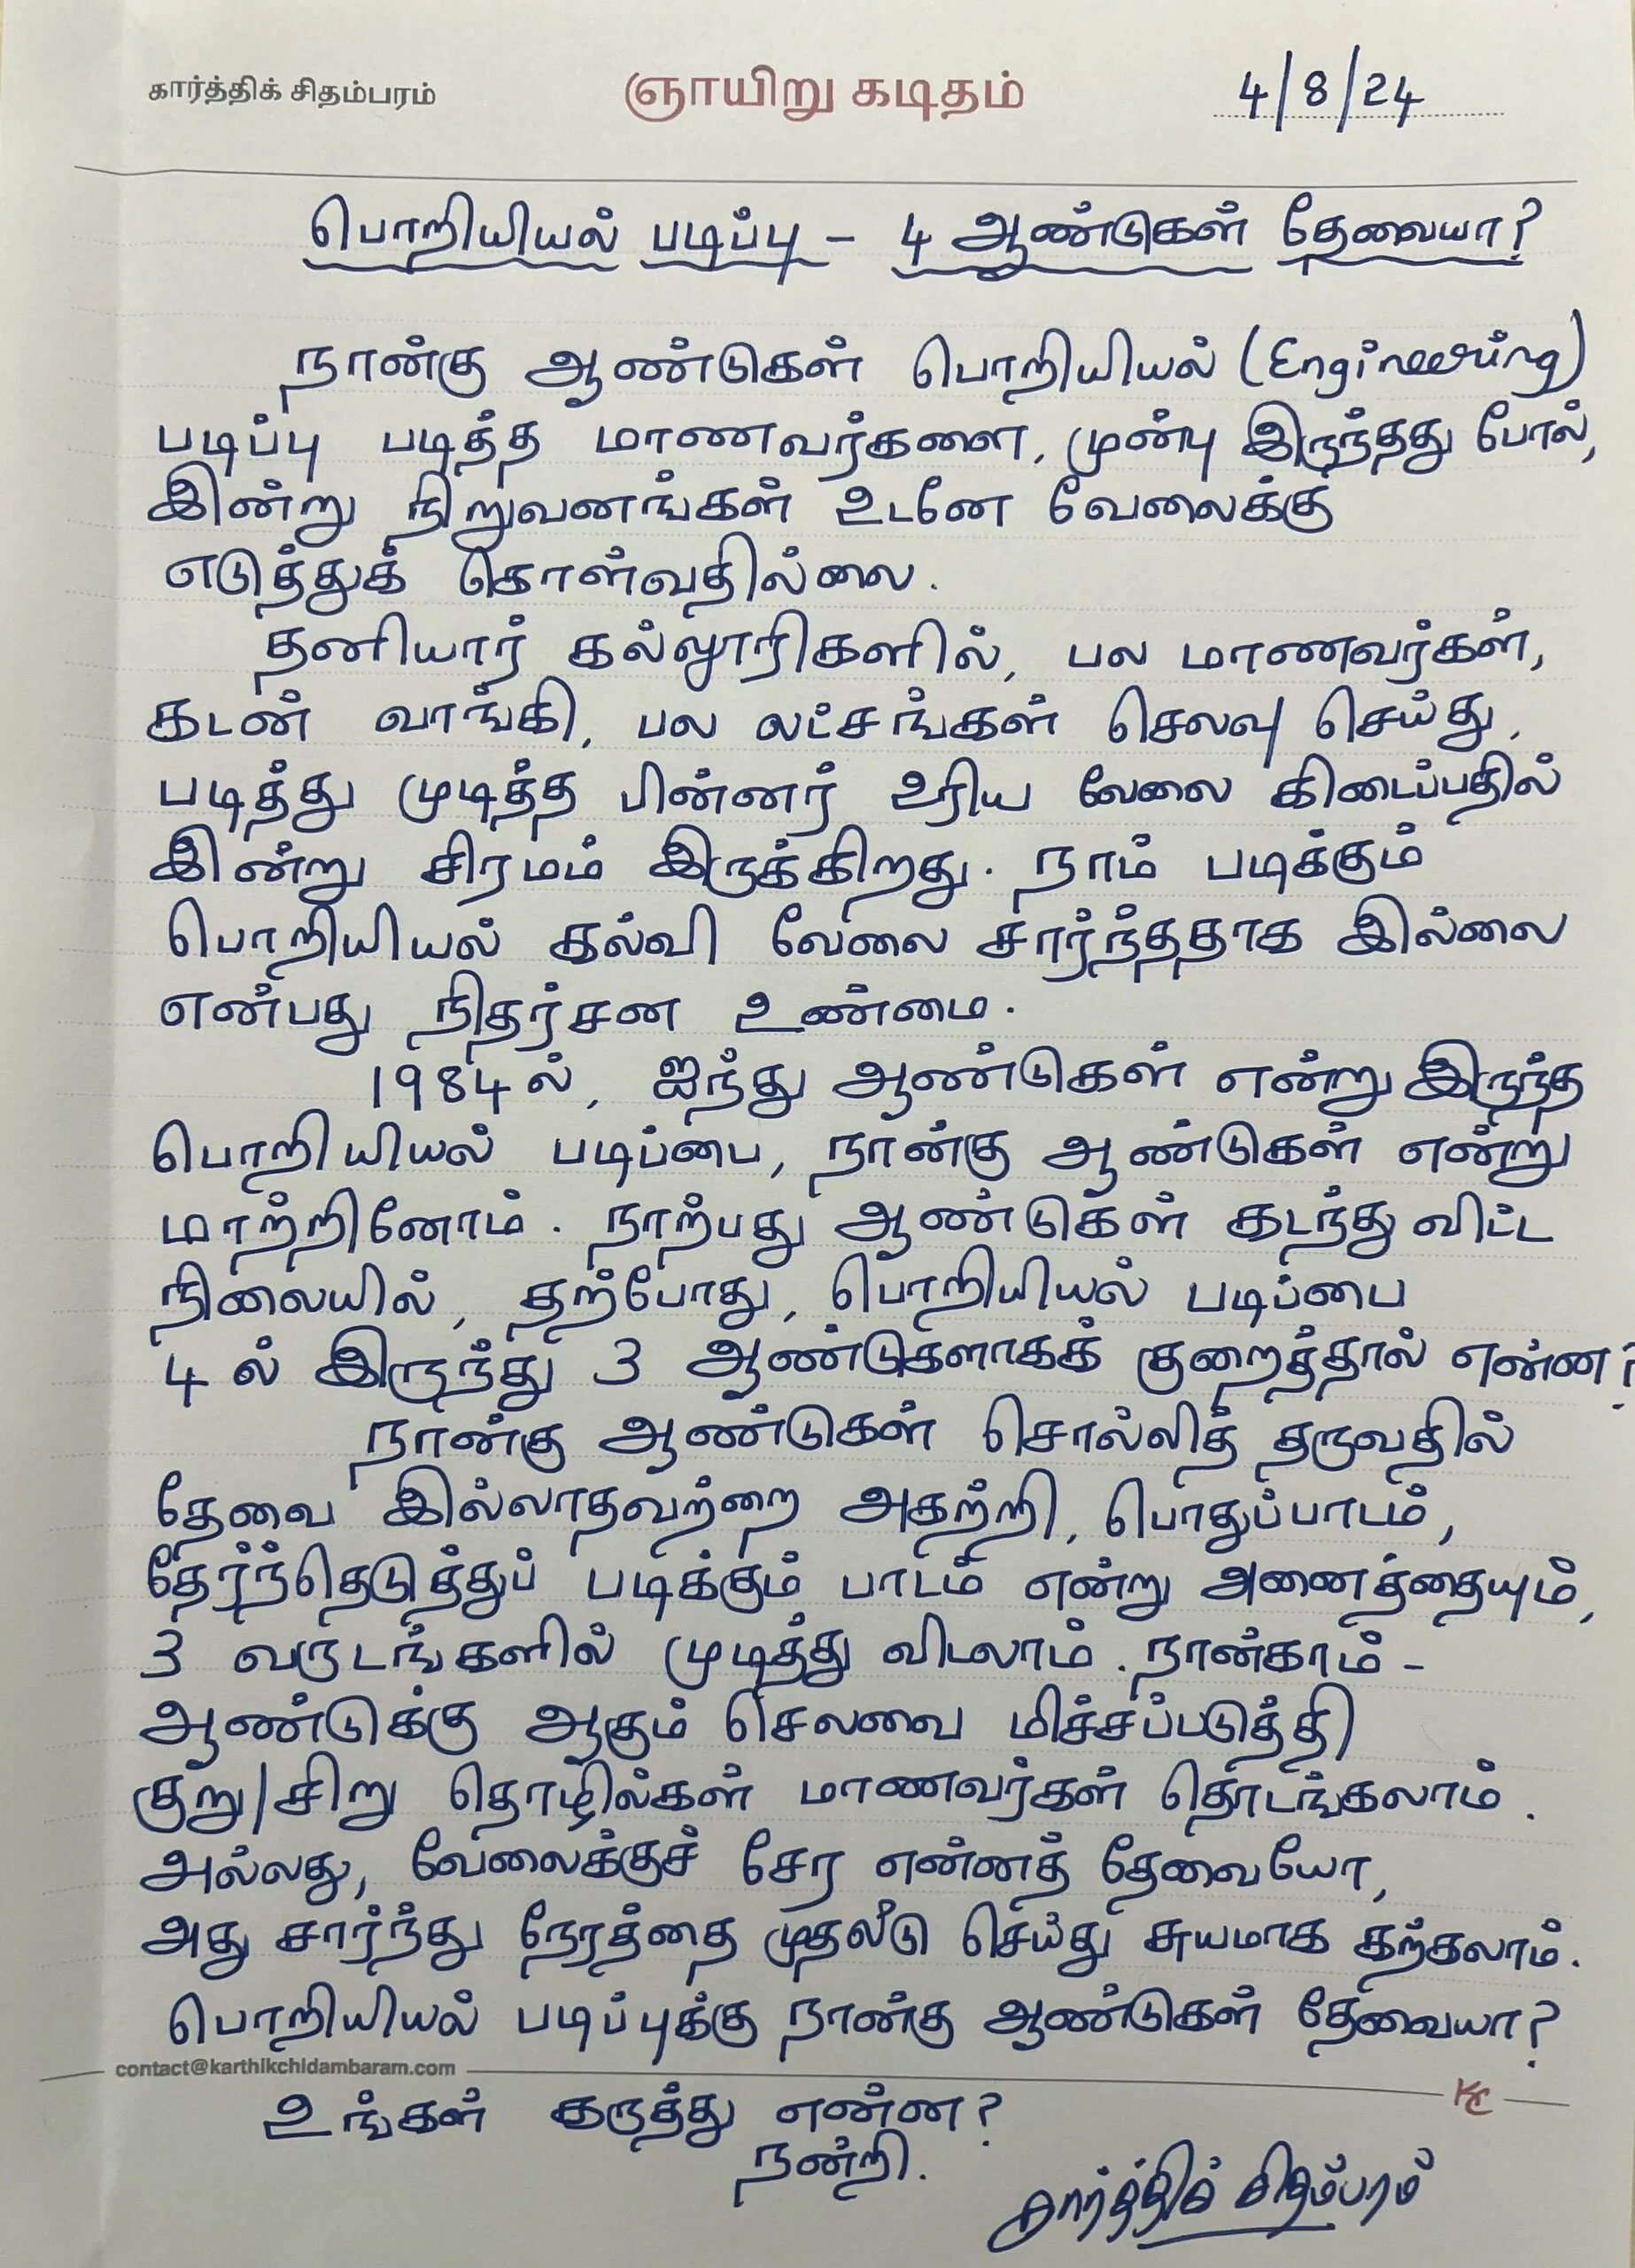 கார்த்திக் சிதம்பரம்
ஞாயிறு கடிதம்
4/8/24
பொறியியல் படிப்பு - 4 ஆண்டுகள் தேவையா?
நான்கு ஆண்டுகள் பொறியியல் (Engineering)
படிப்பு படித்த மாணவர்களை, முன்பு இருந்தது போல்,
இன்று நிறுவனங்கள் உடனே வேலைக்கு
எடுத்துக் கொள்வதில்லை.
தனியார் கல்லூரிகளில், பல மாணவர்கள்,
கடன் வாங்கி, பல லட்சங்கள் செலவு செய்து,
படித்து முடித்த பின்னர் உரிய வேலை கிடைப்பதில்
இன்று சிரமம் இருக்கிறது. நாம் படிக்கும்
பொறியியல் கல்வி வேலை சார்ந்ததாக இல்லை
என்பது நிதர்சன உண்மை.
1984ல், ஐந்து ஆண்டுகள் என்று இருந்த
பொறியியல் படிப்பை, நான்கு ஆண்டுகள் என்று
மாற்றினோம். நாற்பது ஆண்டுகள் கடந்து விட்ட
நிலையில், தற்போது, பொறியியல் படிப்பை
4 ல் இருந்து 3 ஆண்டுகளாகக் குறைத்தால் என்ன?
நான்கு ஆண்டுகள் சொல்லித் தருவதில்
தேவை இல்லாதவற்றை அகற்றி, பொதுப்பாடம்,
தேர்ந்தெடுத்துப் படிக்கும் பாடம் என்று அனைத்தையும்,
3 வருடங்களில் முடித்து விடலாம். நான்காம் -
ஆண்டுக்கு ஆகும் செலவை மிச்சப்படுத்தி
குறு/சிறு தொழில்கள் மாணவர்கள் தொடங்கலாம்.
அல்லது, வேலைக்குச் சேர என்னத் தேவையோ,
அது சார்ந்து நேரத்தை முதலீடு செய்து சுயமாக கற்கலாம்.
பொறியியல் படிப்புக்கு நான்கு ஆண்டுகள் தேவையா?
contact@karthikchidambaram.com
KC
உங்கள் கருத்து என்ன?
நன்றி.
கார்த்திக் சிதம்பரம்